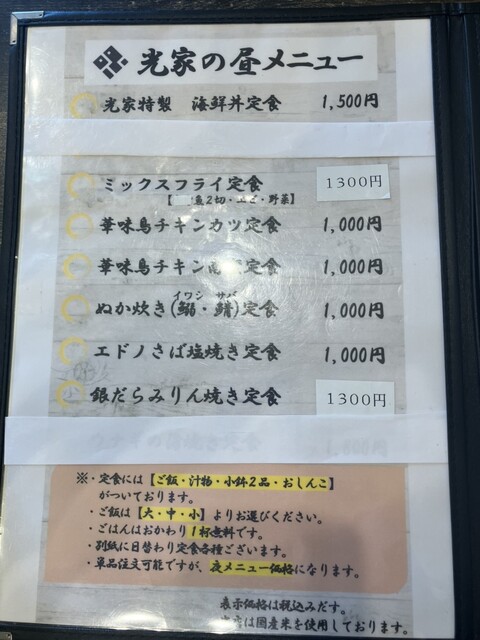 光家の昼メニュー
光家特製 海鮮丼定食 1,500円
ミックスフライ定食 1300円
魚2切・エビ・野菜】
華味鳥チキンカツ定食 1,000円
華味鳥チキン南蛮定食 1,000円
イワシ サバ
ぬか炊き(鰯・鯖)定食 1,000円
エドノさば塩焼き定食 1,000円
銀だらみりん焼き定食 1300円
※・定食には【ご飯・汁物・小鉢2品・おしんこ】
がついております。
・ご飯は【大・中・小】よりお選びください。
・ごはんはおかわり1杯無料です。
・別紙に日替わり定食各種ございます。
・単品注文可能ですが、夜メニュー価格になります。
表示価格は税込みだす。
は国産米を使用しております。